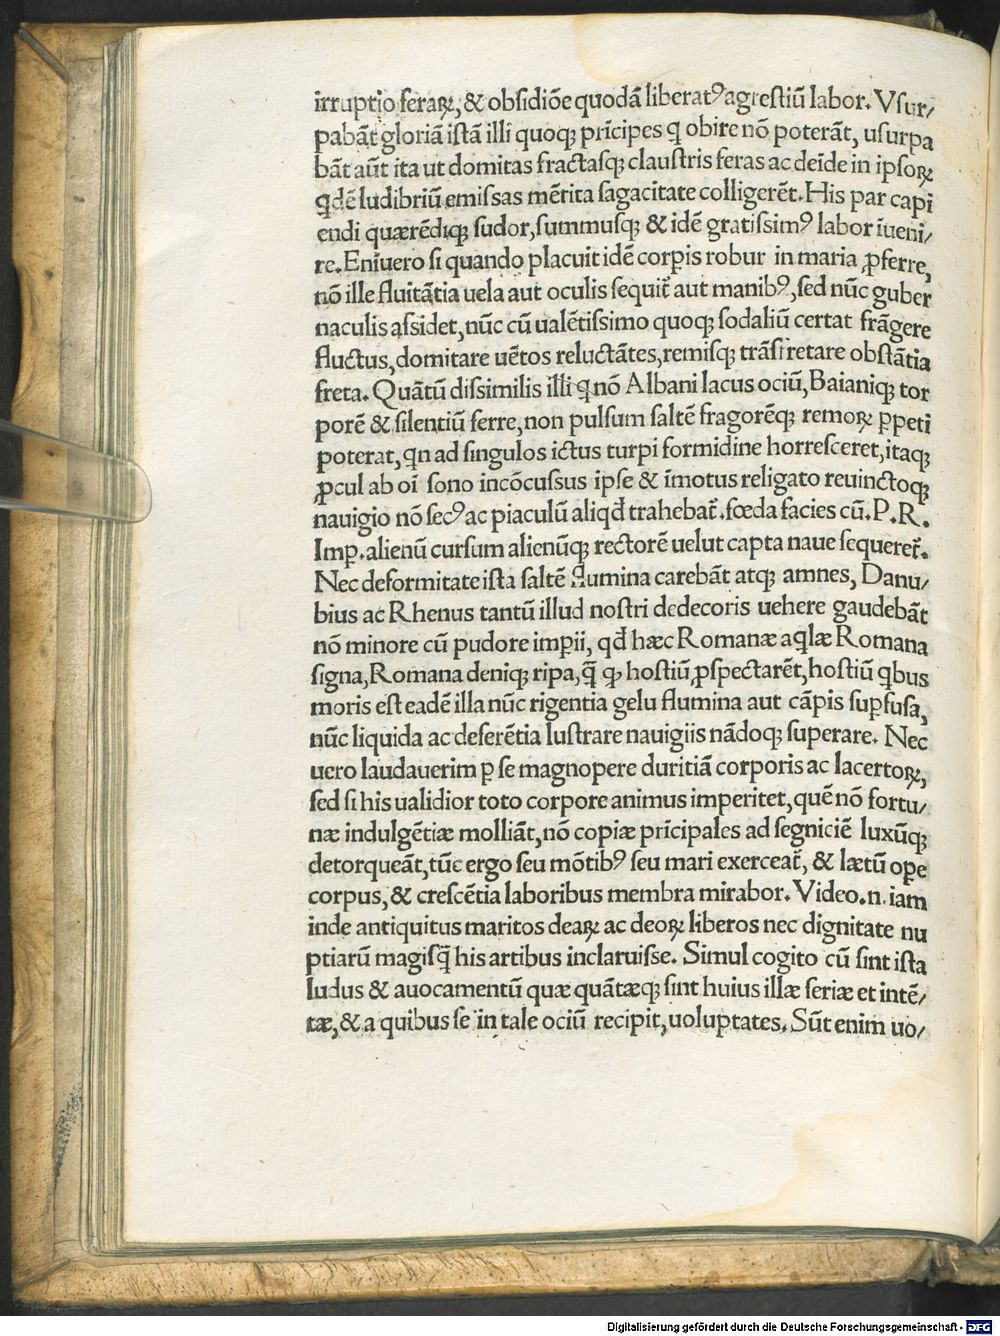 irruptio feraꝝ, & obsidiōe quodā liberatꝰ agrestiū labor. Vsur/
pabāt gloriā istā illi quoqꝫ prīcipes q̄ obire nō poterāt, usurpa
bāt aūt ita ut domitas fractasqꝫ claustris feras ac deīde in ipsoꝝ
q̄dē ludibriū emissas mētita sagacitate colligerēt. His par capi
endi quærēdiqꝫ sudor, summusqꝫ & idē gratissimꝰ labor īueni/
re. Enīuero si quando placuit idē corꝑis robur in maria ꝓferre,
nō ille fluitātia uela aut oculis sequit̄ aut manibꝰ, sed nūc guber
naculis assidet, nūc cū ualētissimo quoqꝫ sodaliū certat frāgere
fluctus, domitare uētos reluctātes, remisqꝫ trāsfretare obstātia
freta. Quātū dissimilis illi q̄ nō Albani lacus ociū, Baianiqꝫ tor
porē & silentiū ferre, non pulsum saltē fragorēqꝫ remoꝝ ꝑpeti
poterat, qn̄ ad singulos ictus turpi formidine horresceret, itaqꝫ
ꝓcul ab oī sono incōcussus ipse & īmotus religato reuinctoqꝫ
nauigio nō secꝰ ac piaculū aliqd̄ trahebat̄. fœda facies cū. P. R.
Imꝑ. alienū cursum alienūqꝫ rectorē uelut capta naue sequeret̄.
Nec deformitate ista saltē flumina carebāt atqꝫ amnes, Danu/
bius ac Rhenus tantū illud nostri dedecoris uehere gaudebāt
nō minore cū pudore impii, qd̄ hæc Romanæ aq̄læ Romana
signa, Romana deniqꝫ ripa, q̄ꝫ ꝙ hostiū ꝓspectarēt, hostiū q̄bus
moris est eadē illa nūc rigentia gelu flumina aut cāpis suꝑfusa,
nūc liquida ac deferētia lustrare nauigiis nādoqꝫ superare. Nec
uero laudauerim ꝑ se magnopere duritiā corporis ac lacertoꝝ,
sed si his ualidior toto corpore animus imperitet, quē nō fortu/
næ indulgētiæ molliāt, nō copiæ prīcipales ad segniciē luxūqꝫ
detorqueāt, tūc ergo seu mōtibꝰ seu mari exerceat̄, & lætū oꝑe
corpus, & crescētia laboribus membra mirabor. Video.n. iam
inde antiquitus maritos deaꝝ ac deoꝝ liberos nec dignitate nu
ptiarū magisq̄ his artibus inclaruisse. Simul cogito cū sint ista
ludus & auocamentū quæ quātæqꝫ sint huius illæ seriæ et intē/
tæ, & a quibus se in tale ociū recipit, uoluptates. Sūt enim uo/
Digitalisierung gefördert durch die Deutsche Forschungsgemeinschaft - DFG